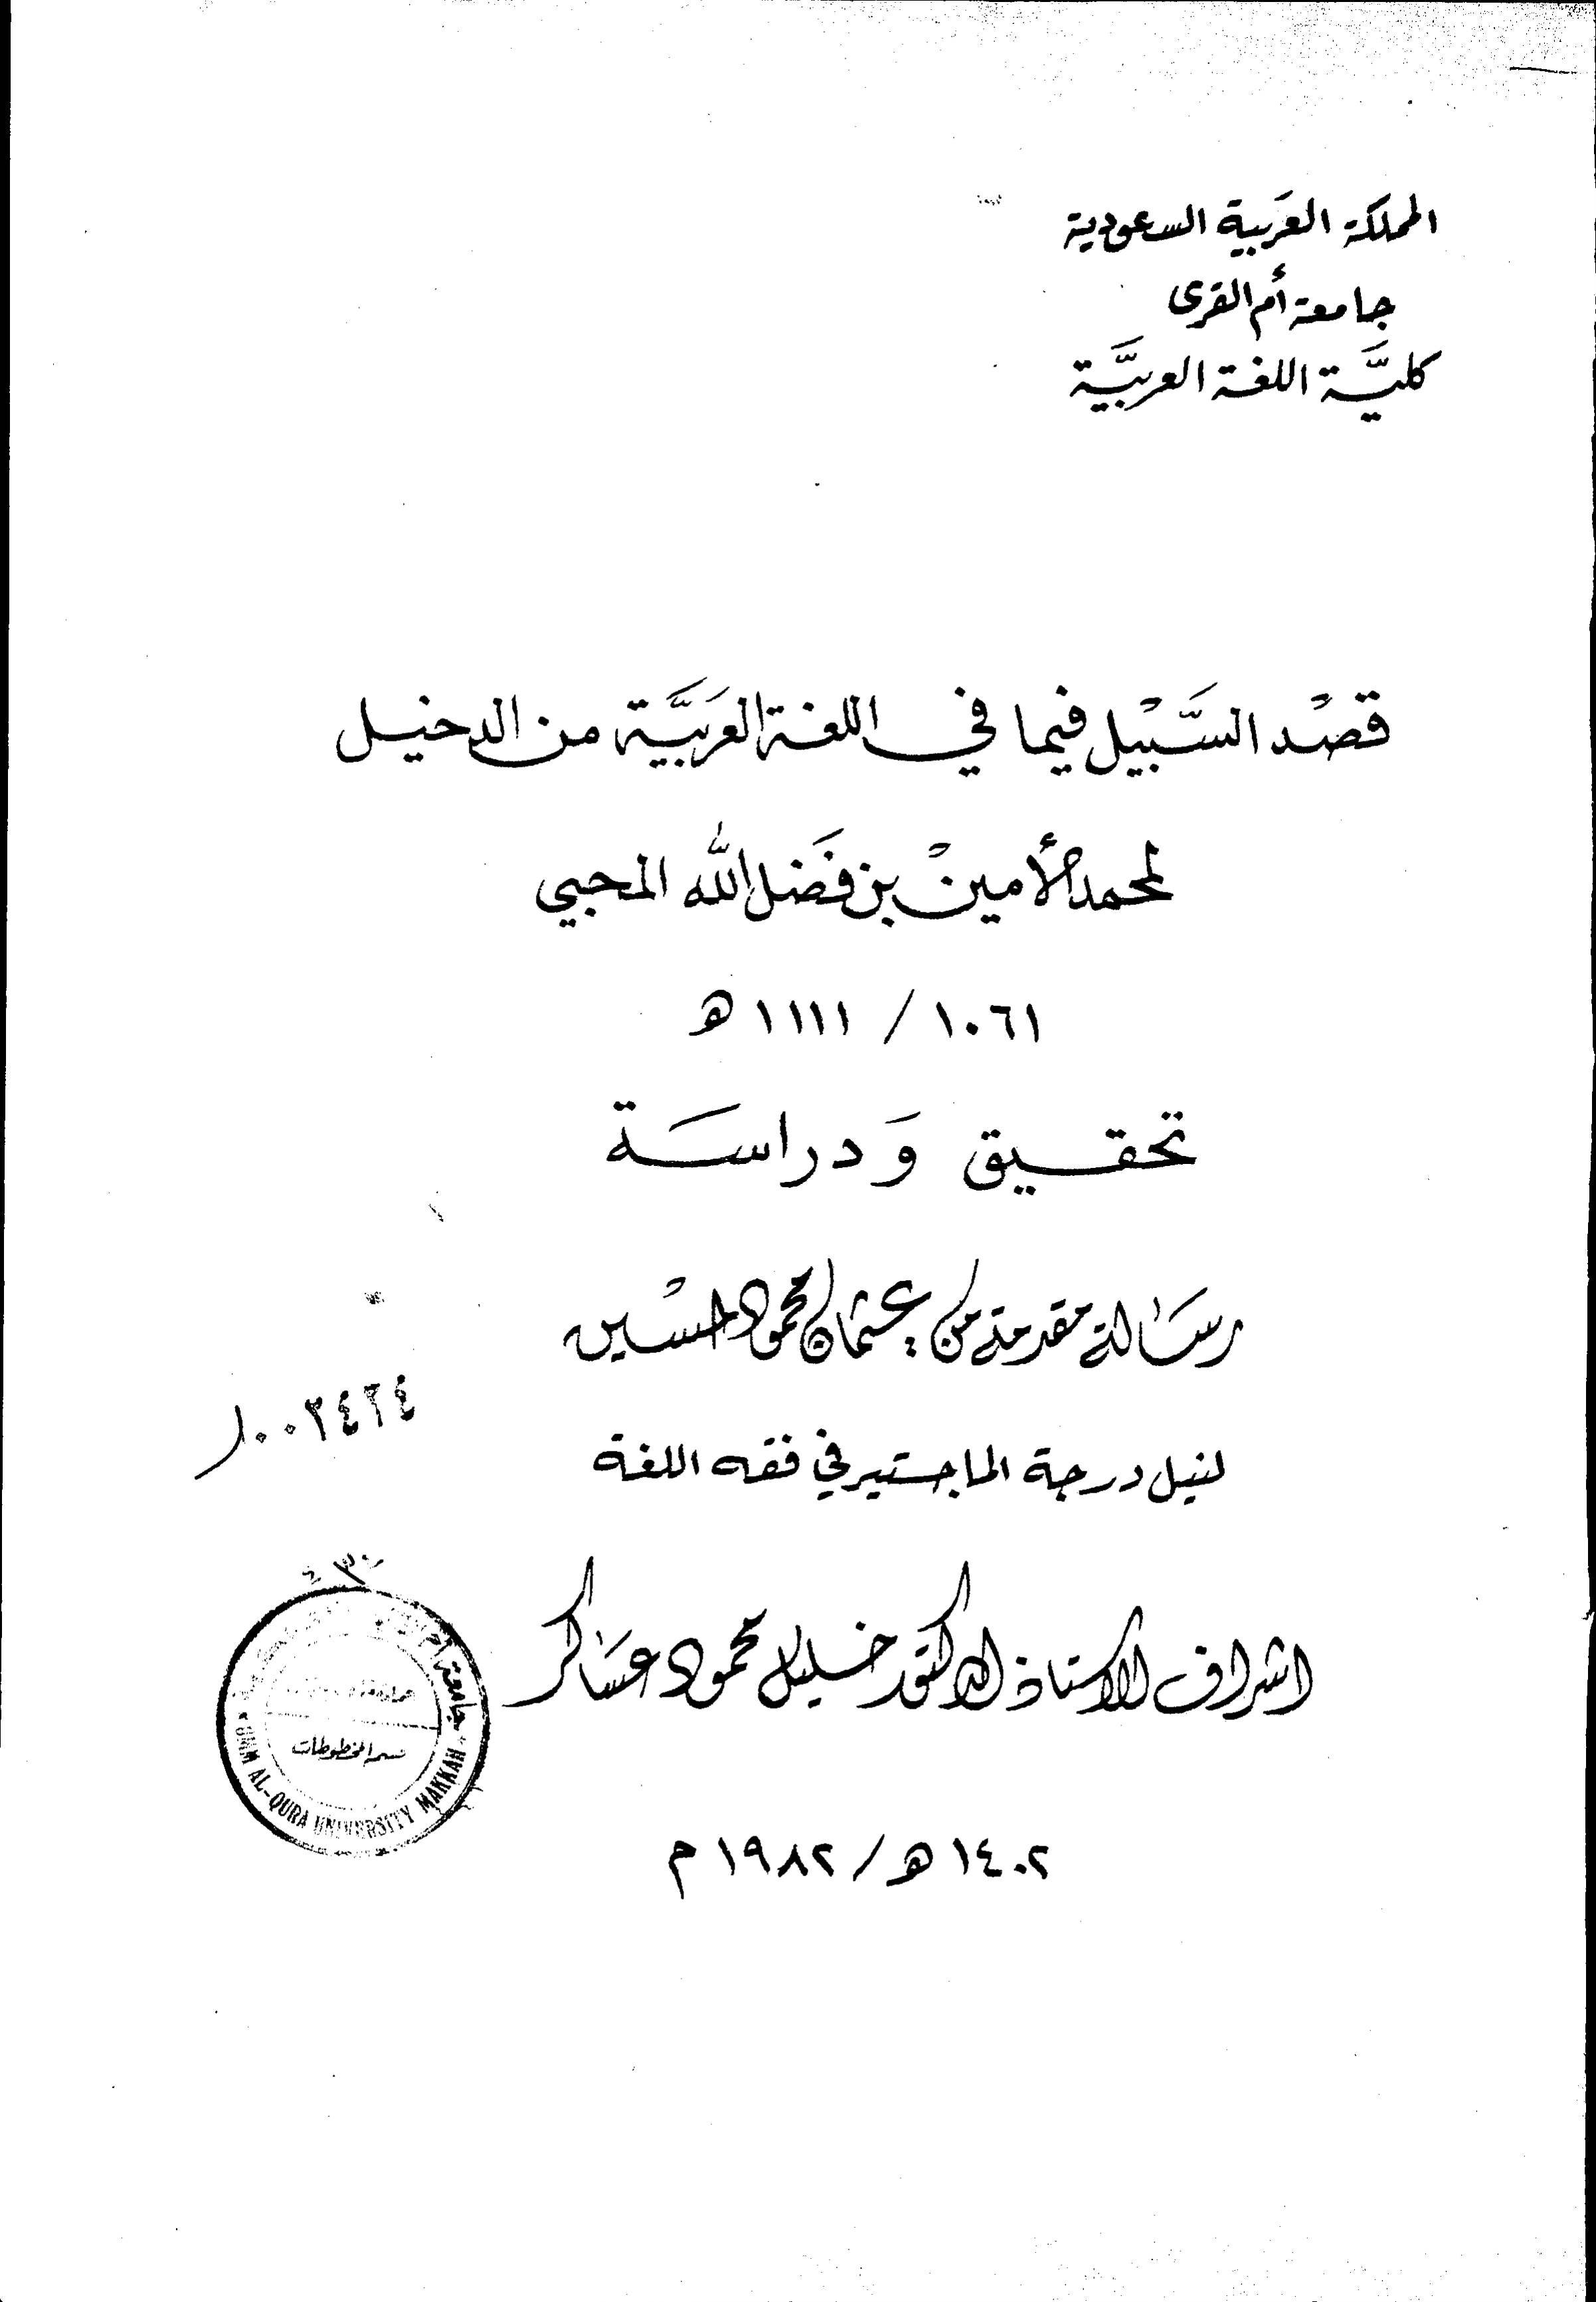 المملكة العَربية السعودية
جامعة أم القرى
كليَّة اللغة العربيَّة
قصْد السَّبيْل فيما في اللغة العَربيَّة من الدخيل
لمحمد الأمينْ بن فَضل الله المحبي
١٠٦١ / ١١١١ هـ
تحقيق وَدراسَة
رسَالة مقدمة من عثمان محمود حسْين
١٠٠٢٤٢٤
لنيل درجة الماجستير في فقه اللغة
اشراف الاستاذ الدكتور خليل محمود عسَاكر
جامعة أم
قسم المخطوطات
UMM AL-QURA UNIVERSITY MAKKAH
١٤٠٢ هـ / ١٩٨٢ م